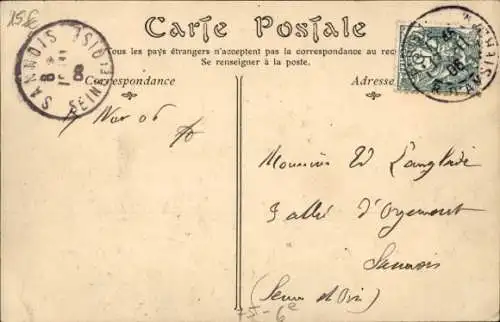 15 €
Carte Postale
Tous les pays étrangers n'acceptent pas la correspondance au rec
Se renseigner à la poste.
Correspondance
Adresse
SANNOIS
SEINE ET OISE
8
8
06
Nov 06
Monsieur Ed Langlade
7 allée d'Orgemont
Sannois
(Seine et Oise)
75-6e